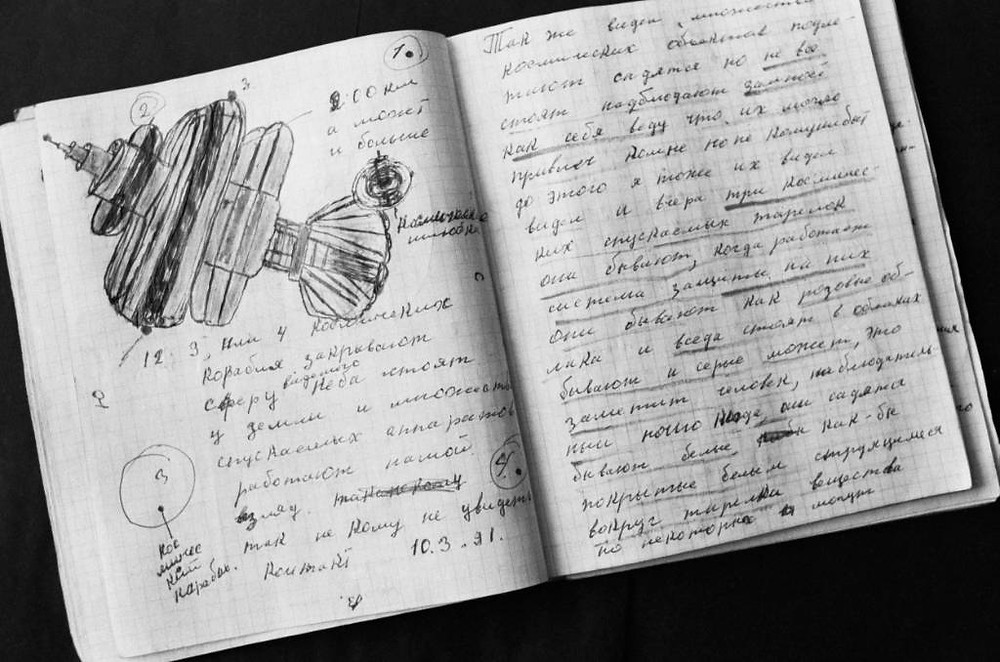 1.
2
3.
200 км
а может
и больше
Космическа
шлюпка
12. 3, или 4 космических
корабля, закрывают
сферу видемого неба стоят
у земли и множеств
спускаемых аппаратов
работают нашой
взляд.
так не кому не увидеть
контакт 10.3.91.
3
Кос
мичес
кий
карабль.
4.
Так же виден множество
космических объектов подле-
тают садятся но не все
стоят надблюдают замной
как себя веду что их можно
привлеч комне но не
до этого я тоже их видел
видел и вчера три космичес-
ких спускаемых тарелок
они бывают, когда работает
система защиты на них
они бывают как розовые об-
лака и всегда стоят в облаках
бывают и серые может, это
заметит человек, наблюдатель-
ный они садятся
бывают белые как-бы
покрытые белым струящимся
вокруг тарелки вещества
но некоторые могут